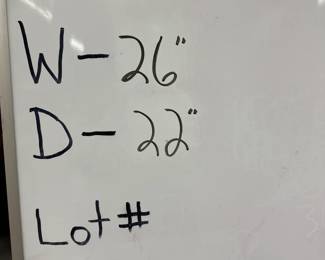 W - 26"
D - 22"
Lot #